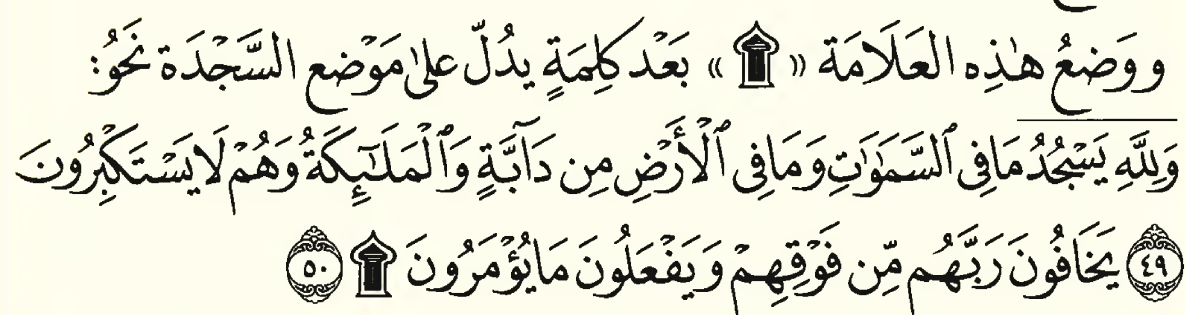 ووَضعُ هٰذِه العَلَامَة «۩» بَعْد كلِمَةٍ يدُلّ علىٰ مَوْضع السَّجْدَة نَحْوُ:
وَلِلَّهِ يَسْجُدُ مَا فِي ٱلسَّمَٰوَٰتِ وَمَا فِي ٱلْأَرْضِ مِن دَآبَّةٍ وَٱلْمَلَٰٓئِكَةُ وَهُمْ لَا يَسْتَكْبِرُونَ
٤٩ يَخَافُونَ رَبَّهُم مِّن فَوْقِهِمْ وَيَفْعَلُونَ مَا يُؤْمَرُونَ ۩ ٥٠